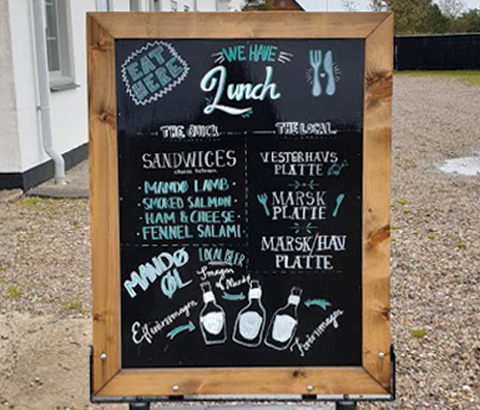 EAT
HERE
WE HAVE
Lunch
THE QUICK
SANDWICES
choose between
MANDØ LAMB
SMOKED SALMON
HAM & CHEESE
FENNEL SALAMI
THE LOCAL
VESTERHAVS
PLATTE
MARSK
PLATTE
MARSK/HAV
PLATTE
MANDØ
ØL
LOCAL BEER
Smagen
af Mandø
Efterårssmagen